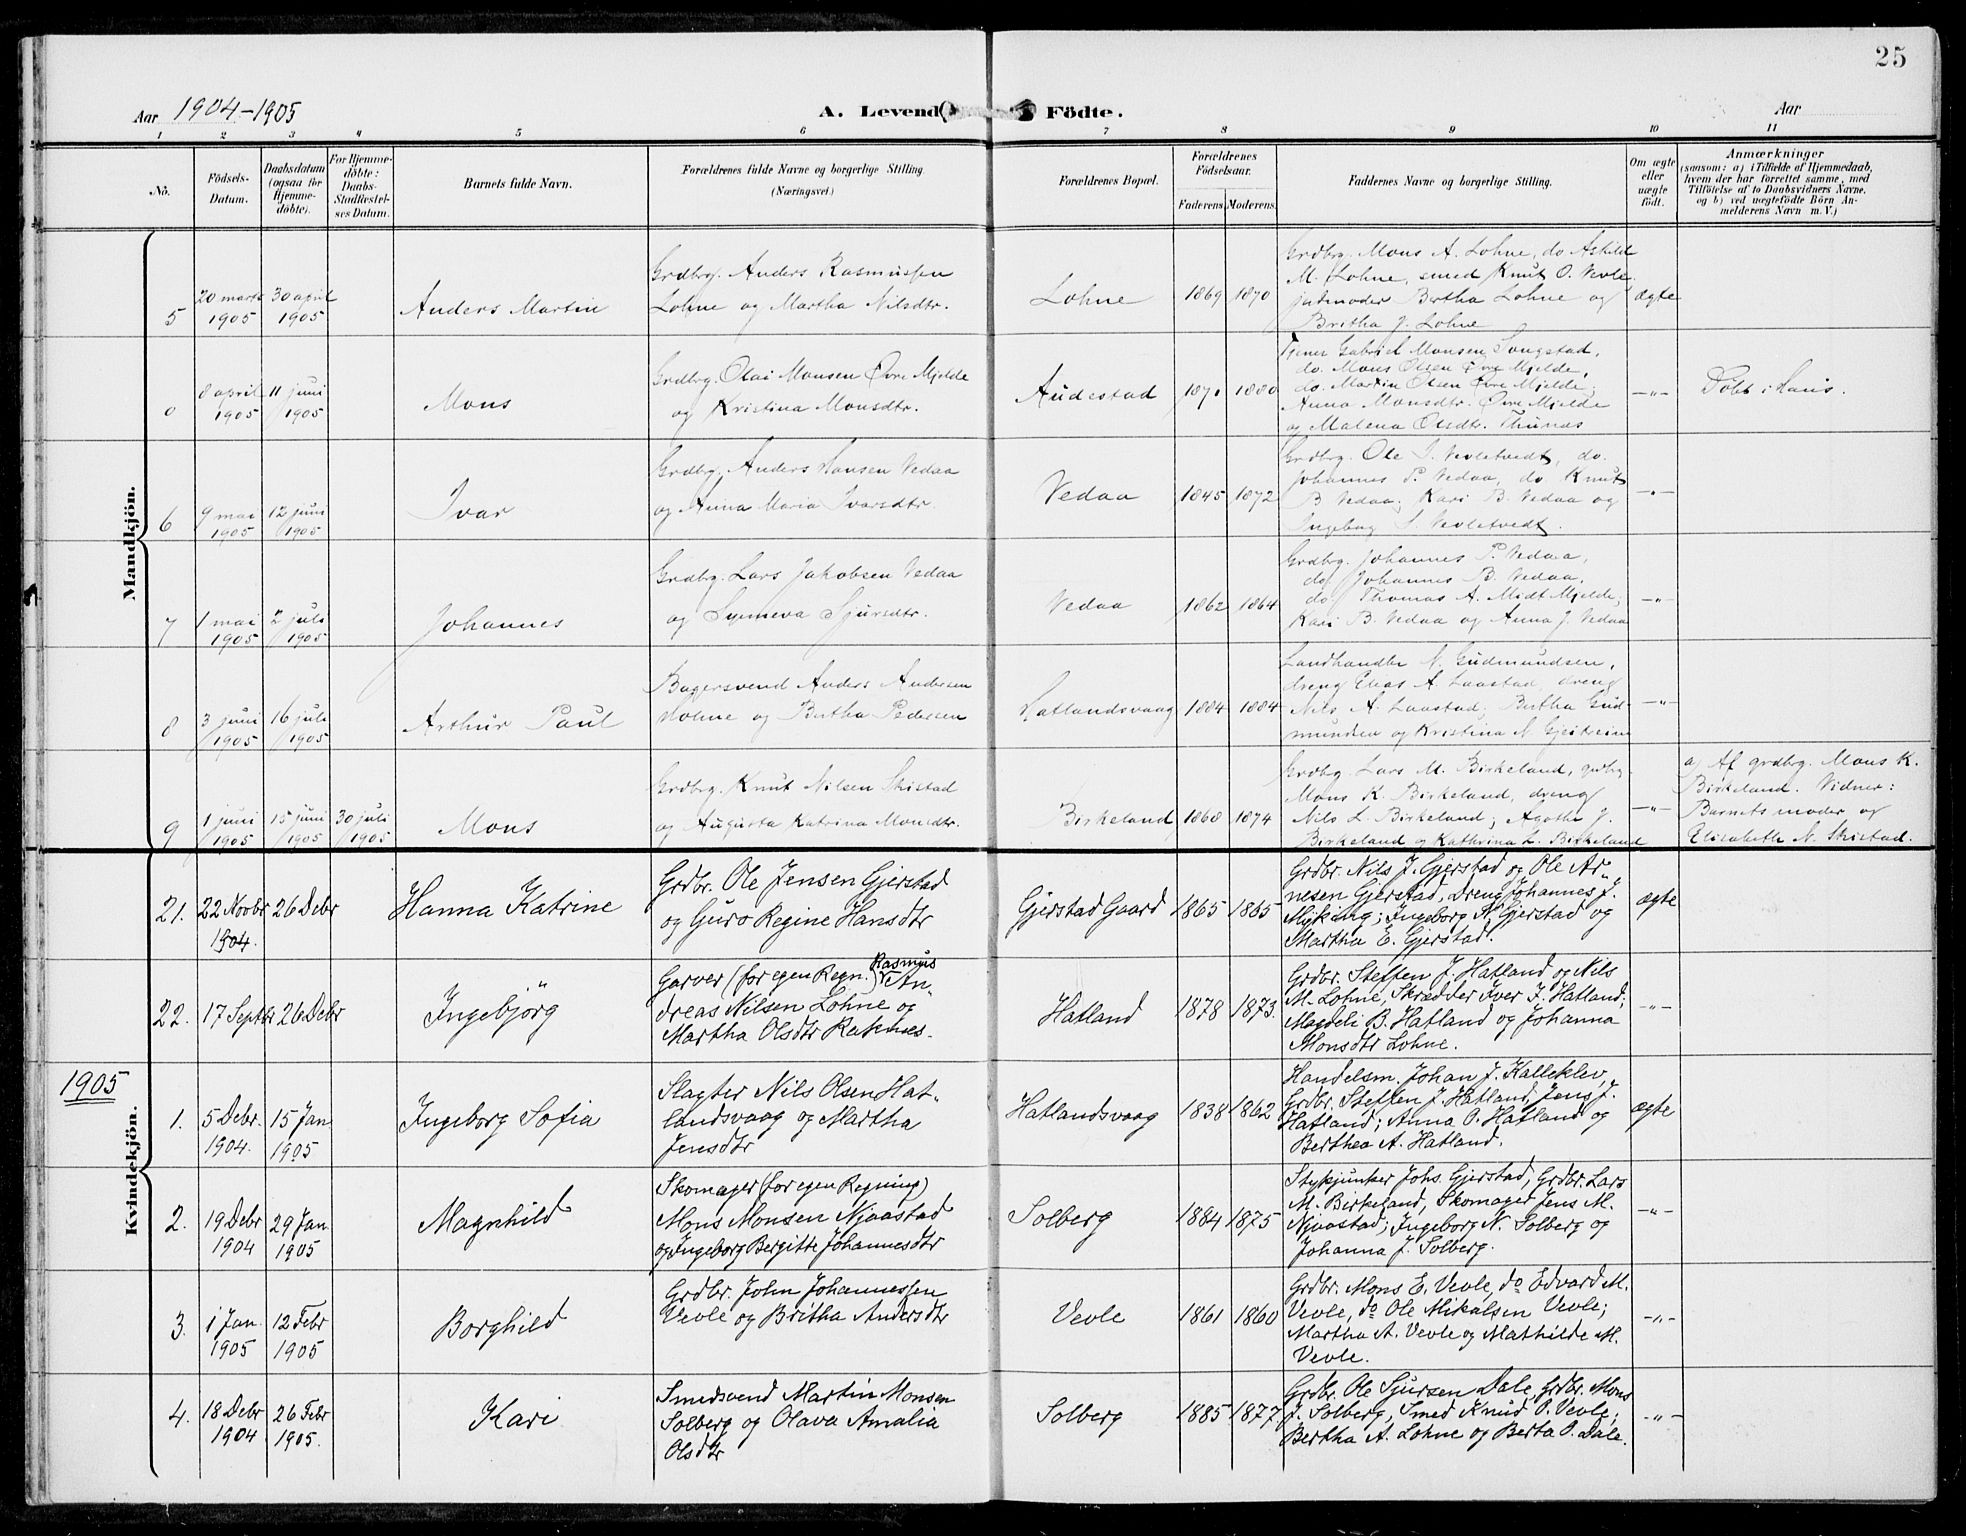 25
Aar 1904-1905
A. Levende Födte.
Aar
1 2 3 4 5 6 7 8 9 10 11
No.
Födsels-Datum.
Daabsdatum (ogsaa for Hjemme-döbte).
For Hjemme-döbte: Daabs-Stadfæstel-ses Datum.
Barnets fulde Navn.
Forældrenes fulde Navne og borgerlige Stilling. (Næringsvei)
Forældrenes Bopæl.
Forældrenes Födselsaar.
Faderens. Moderens.
Faddernes Navne og borgerlige Stilling.
Om ægte eller uægte födt.
Anmærkninger (saasom: a) i Tilfælde af Hjemmedaab, hvem der har forrettet samme, med Tilföielse af to Daabsvidners Navne. og b) ved uægtefödte Börn An-melderens Navn m. V.)
Mandkjön.
5
20 marts 1905
30 april 1905
Anders Martin
Grdbrg. Anders Rasmussen
Lohne og Martha Nilsdtr.
Lohne
1869 1870
Grdbrg. Mons A. Lohne, do Askild
M. Lohne, smed Knut O. Vevle
jordmoder Bertha Lohne og
Britha J. Lohne
ægte
0
8 april 1905
11 juni 1905
Mons
Grdbrg. Olai Monsen Øvre Mjelde
og Kristina Monsdtr.
Audestad
1871 1880
Tjener Gabriel Monsen Songstad,
do. Mons Olsen Øvre Mjelde,
do. Martin Olsen Øvre Mjelde;
Anna Monsdtr. Øvre Mjelde
og Malena Olsdtr. Thunes
-"-
Döbt i Haus.
6
9 mai 1905
12 juni 1905
Ivar
Grdbrg. Anders Hansen Vedaa
og Anna Maria Ivarsdtr.
Vedaa
1845 1872
Grdbrg. Ole I. Vevletvedt, do.
Johannes P. Vedaa, do Knut
B Vedaa; Kari B. Vedaa og
Ingeborg I. Vevletvedt.
-"-
7
1 mai 1905
2 juli 1905
Johannes
Grdbrg. Lars Jakobsen Vedaa
og Synneva Sjursdtr.
Vedaa
1862 1864
Grdbrg. Johannes P. Vedaa,
do Johannes B. Vedaa,
do Thomas A. Midt Mjelde;
Kari B. Vedaa og Anna J. Vedaa
-"-
8
3 juni 1905
16 juli 1905
Arthur Paul
Bagersvend Anders Andersen
Holme og Bertha Pedersen
Hatlandsvaag
1884 1884
Landhandler N. Gudmundsen,
dreng Elias A. Laastad, dreng
Nils A. Laastad; Bertha Gud-
mundsen og Kristina N. Gjeitrein
-"-
9
1 juni 1905
15 juni 1905
30 juli 1905
Mons
Grdbrg. Knut Nilsen Skistad
og Augusta Katrina Monsdtr.
Birkeland
1868 1874
Grdbrg. Lars M. Birkeland, grdbrg.
Mons K. Birkeland, dreng
Nils L. Birkeland; Agothe J.
Birkeland og Kathrina L. Birkeland
-"-
a) Af grdbrg. Mons K.
Birkeland. Vidner:
Barnets moder og
Elisabeth N. Skistad.
Kvindekjön.
21.
22 Novbr 1904.
26 Debr
Hanna Katrine
Grdbr. Ole Jensen Gjerstad
og Guro Regine Hansdtr
Gjerstad Gaard
1865 1865
Grdbr. Nils J. Gjerstad og Ole Ar-
nesen Gjerstad, Dreng Johannes J.
Myking; Ingeborg N. Gjerstad og
Martha E. Gjerstad.
ægte
22.
17 Septbr
26 Debr
Ingebjörg
Garver (for egen Regn.) Rasmus An-
dreas Nilsen Lohne og
Martha Olsdtr Raknes.
Hatland
1878 1873.
Grdbr. Steffen J. Hatland og Nils
M. Lohne, Skrædder Iver J. Hatland;
Magdeli B. Hatland og Johanna
Monsdtr Lohne.
-"-
1905
1.
5 Debr. 1904.
15 Jan 1905
Ingeborg Sofia
Slagter Nils Olsen Hat-
landsvaag og Martha
Jensdtr
Hatlandsvaag
1838 1862
Handelsm. Johan J. Kalleklev,
Grdbr. Steffen J. Hatland, Jens J.
Hatland; Anna O. Hatland og
Berthea A. Hatland.
ægte
2.
19 Debr 1904
29 Jan 1905
Magnhild
Skomager (for egen Regning)
Mons Monsen Njaastad
og Ingeborg Bergitte Johannesdtr
Solberg
1884 1875
Stykjunker Johs. Gjerstad, Grdbr. Lars
M. Birkeland, Skomager Jens M.
Njaastad; Ingeborg N. Solberg og
Johanna J. Solberg.
-"-
3.
1 Jan 1905
12 Febr 1905
Borghild
Grdbr. John Johannessen
Vevle og Britha Andersdtr
Vevle
1861 1860
Grdbr. Mons E. Vevle, do Edvard M.
Vevle, do Ole Mikalsen Vevle;
Martha A. Vevle og Mathilde M.
Vevle.
-"-
4.
18 Debr 1904
26 Febr 1905.
Kari
Smedsvend Martin Monsen
Solberg og Olava Amalia
Olsdtr
Solberg
1885 1877
Grdbr. Ole Sjursen Dale, Grdbr. Mons
J. Solberg, Smed Knud O. Vevle;
Bertha A. Lohne og Berta O. Dale.
-"-